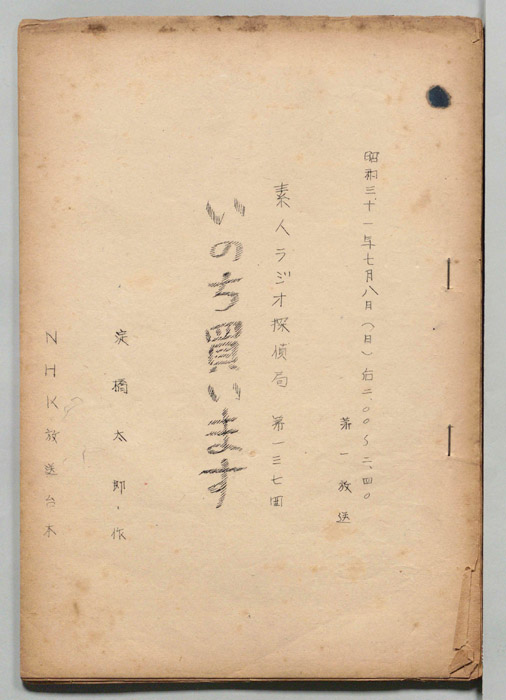 昭和三十一年七月八日(日)后二.〇〇~二.四〇
第一放送
素人ラジオ探偵局 第一三七回
いのち買います
淀橋太郎・作
NHK放送台本